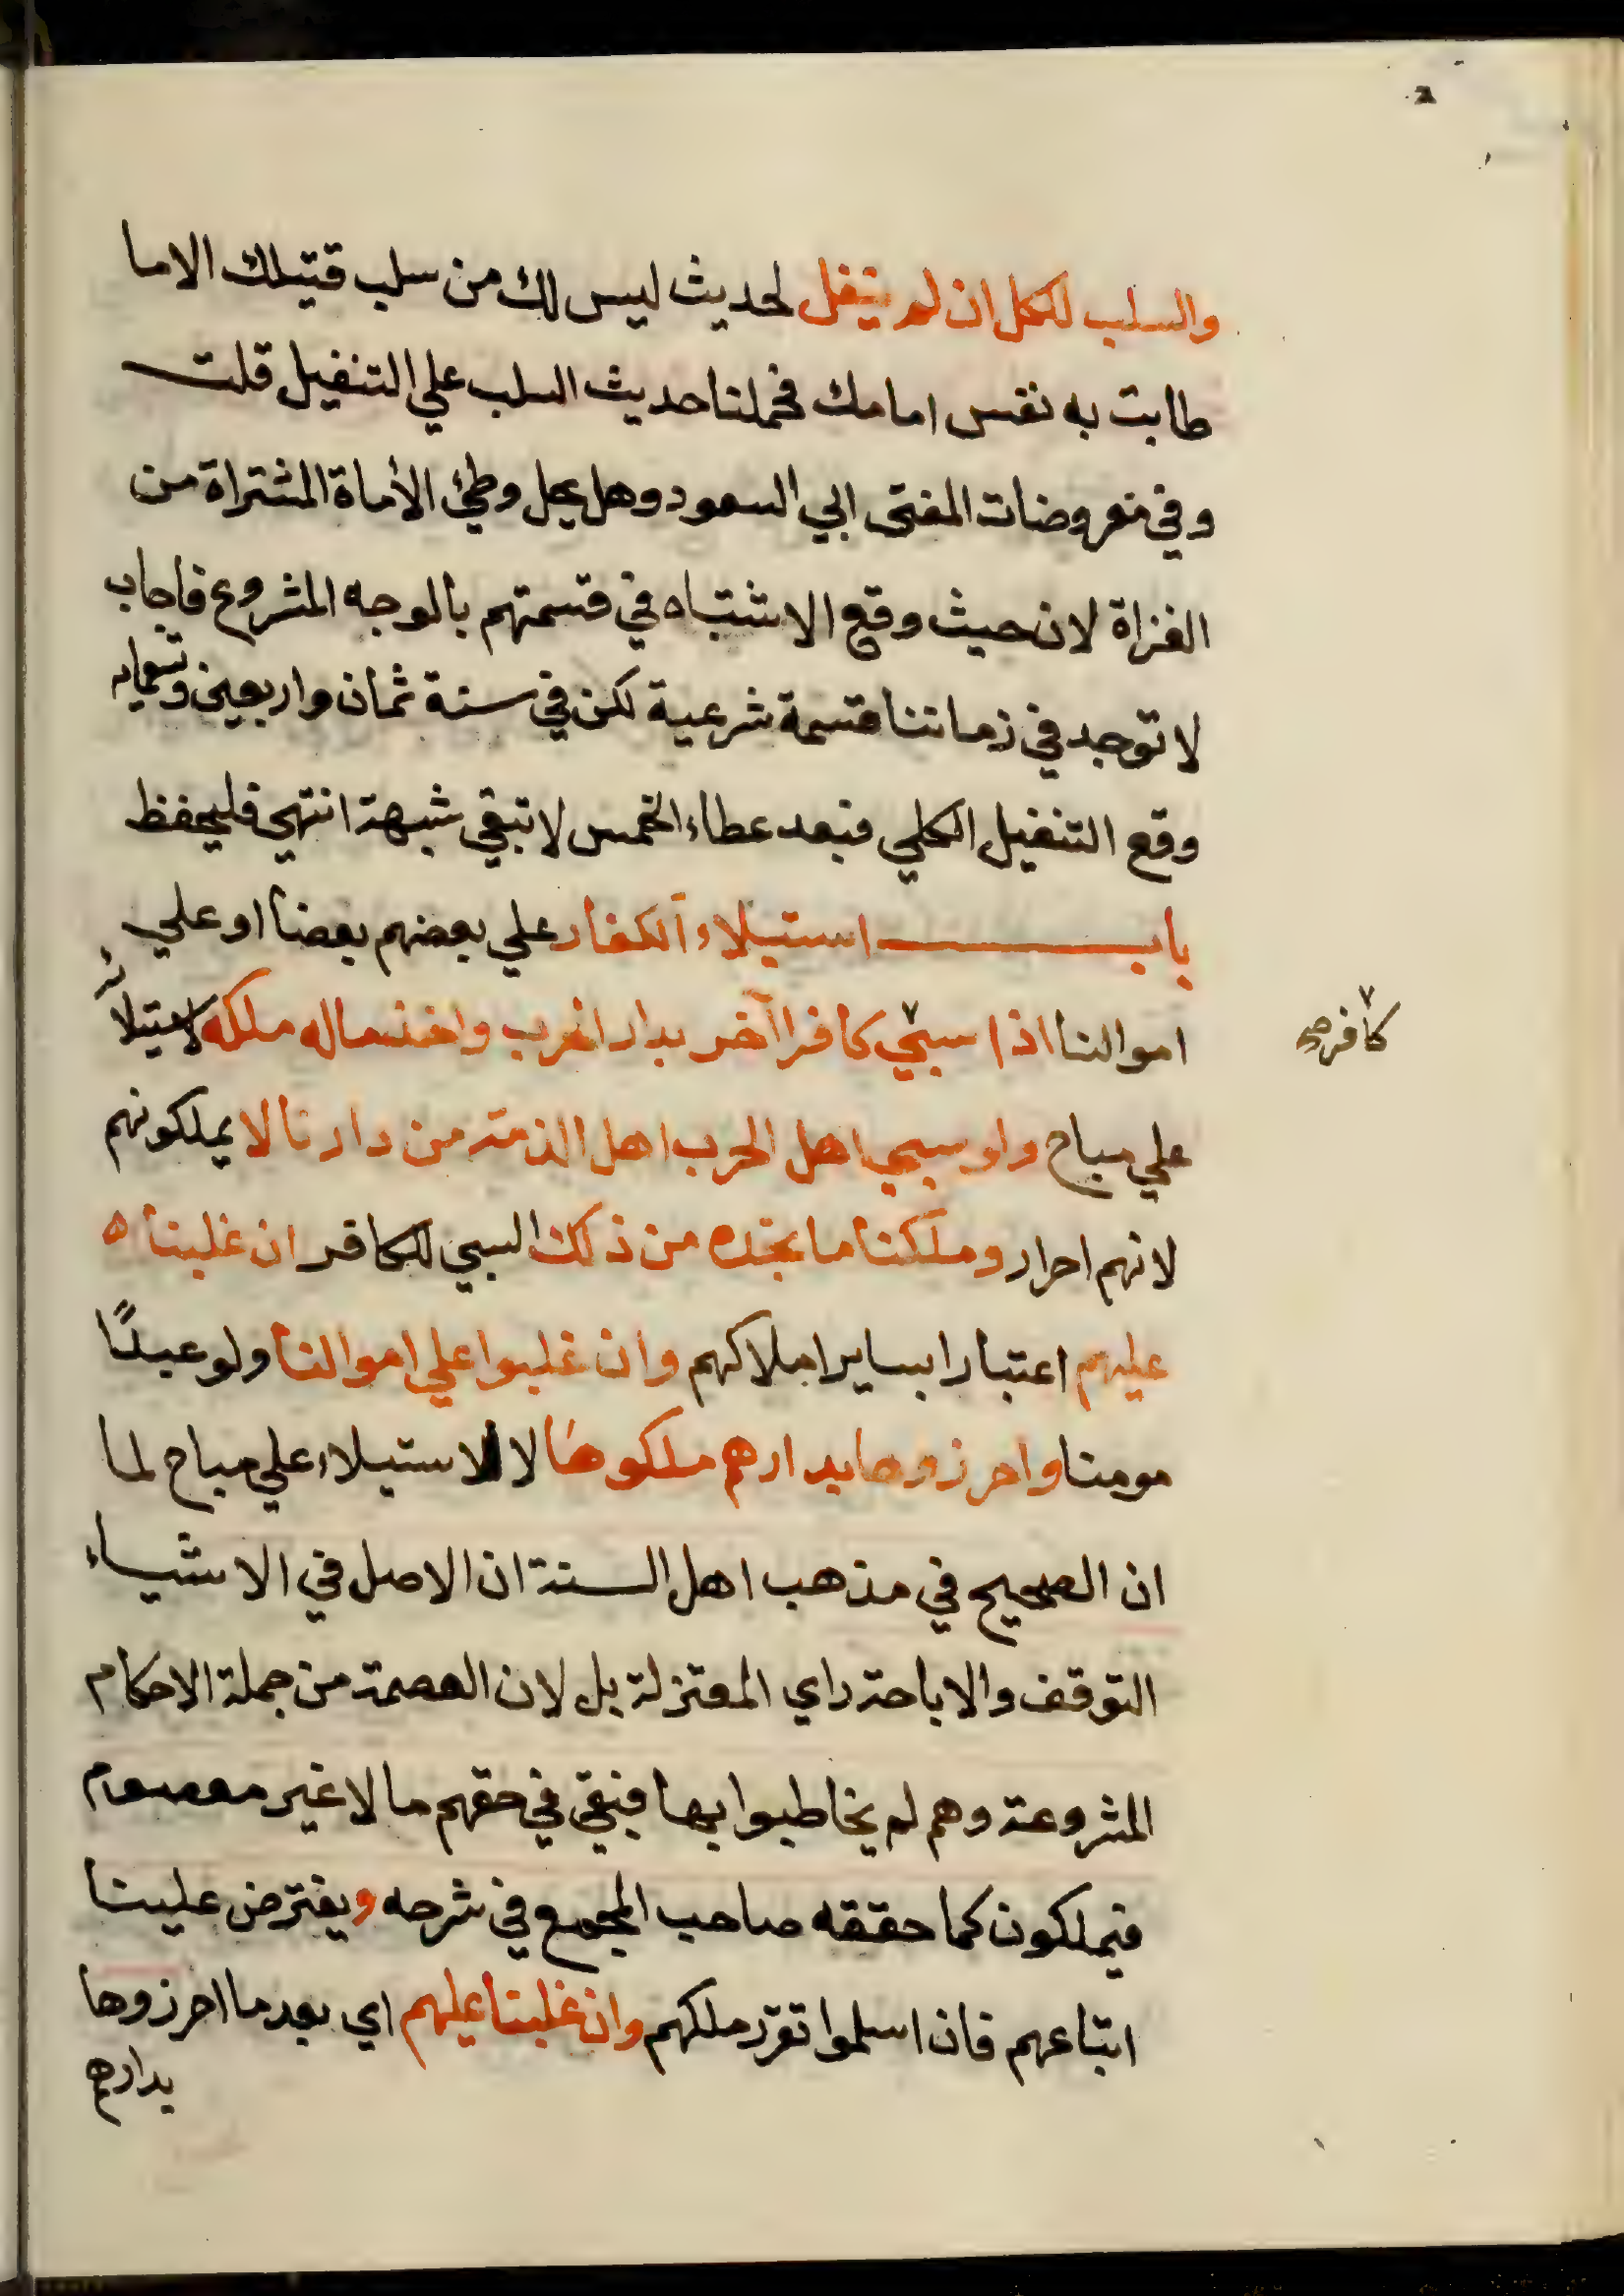 والسلب للكل ان لم ينفل لحديث ليس لك من سلب قتيلك الاما
طابت به نفس امامك فحملنا حديث السلب علي التنفيل قلت
وفي معروضات المفتى ابي السعود وهل يحل وطئ الأماة المشتراة من
الغزاة لان حيث وقع الاشتباه في قسمتهم بالوجه المشروع فاجاب
لا توجد في زماننا قسمة شرعية لكن في سنة ثمان واربعين وتسعمايه
وقع التنفيل الكلي فبعد عطاء الخمس لا تبقي شبهة انتهي فليحفظ
باب استيلاء الكفار علي بعضهم بعضا او علي
اموالنا اذا سبي كافرا آخر بدار الحرب واخذ ماله ملكه لاستيلائه
كافر صح
علي مباح ولو سبي اهل الحرب اهل الذمة من دارنا لا يملكونهم
لانهم احرار وملكنا ما نجده من ذلك السبي للكافر ان غلبنا ه
عليهم اعتبارا بساير املاكهم وان غلبوا علي اموالنا ولو عبدًا
مومنا واحرزوها بدارهم ملكوها لا للاستيلاء علي مباح لما
ان الصحيح في مذهب اهل السنة ان الاصل في الاشياء
التوقف والاباحة راي المعتزلة بل لان العصمة من جملة الاحكام
المشروعة وهم لم يخاطبوا بها فبقي في حقهم مالا غير معصوم
فيملكون كما حققه صاحب المجمع في شرحه ويفترض علينا
اتباعهم فان اسلموا تقرر ملكهم وان غلبنا عليهم اي بعد ما احرزوها
بدارهم